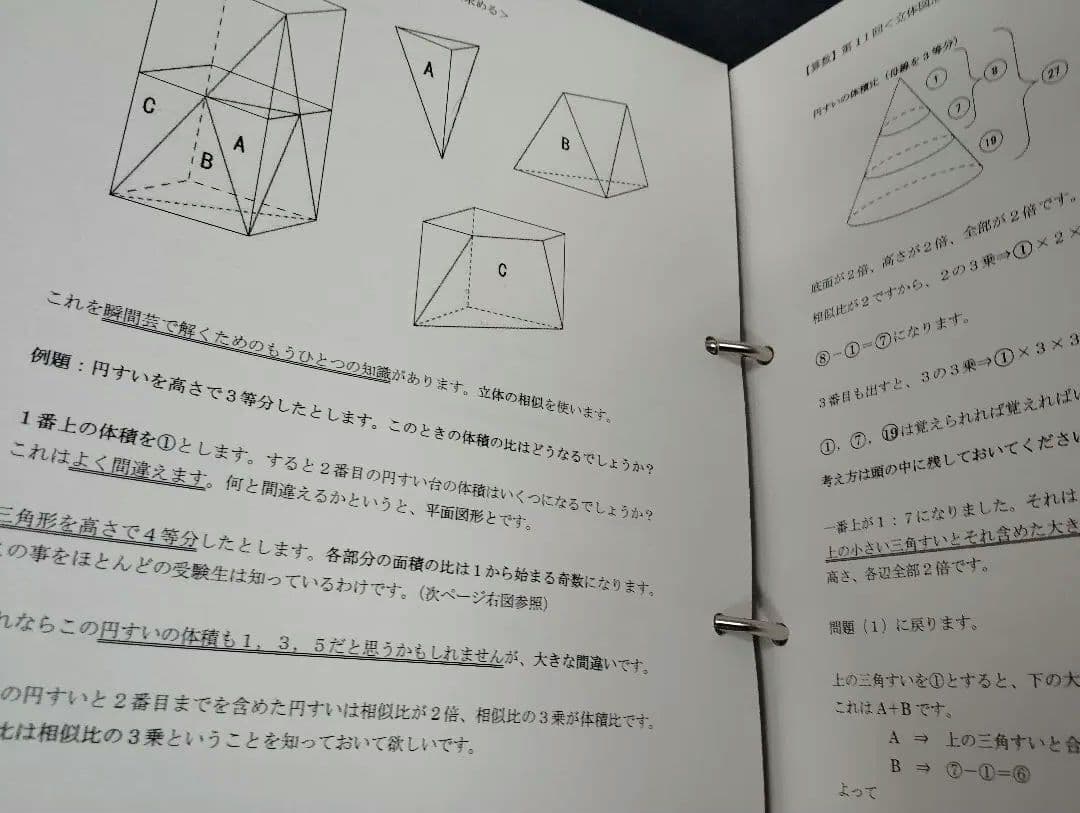 求める>
C
B
A
A
B
C
これを瞬間芸で解くためのもうひとつの知識があります。立体の相似を使います。
例題：円すいを高さで３等分したとします。このときの体積の比はどうなるでしょうか？
１番上の体積を①とします。すると２番目の円すい台の体積はいくつになるでしょうか？
これはよく間違えます。何と間違えるかというと、平面図形とです。
三角形を高さで４等分したとします。各部分の面積の比は１から始まる奇数になります。
の事をほとんどの受験生は知っているわけです。(次ページ右図参照)
れならこの円すいの体積も１，３，５だと思うかもしれませんが、大きな間違いです。
の円すいと２番目までを含めた円すいは相似比が２倍、相似比の３乗が体積比です。
比は相似比の３乗ということを知っておいて欲しいです。
【算数】第１１回＜立体図
円すいの体積比（母線を３等分）
①
⑦
⑲
⑧
㉗
底面が２倍、高さが２倍、全部が２倍です。
相似比が２ですから、２の３乗⇒①×２×
⑧－①＝⑦になります。
３番目も出すと、３の３乗⇒①×３×３
①，⑦，⑲は覚えられれば覚えればい
考え方は頭の中に残しておいてください
一番上が１：７になりました。それは
上の小さい三角すいとそれ含めた大き
高さ、各辺全部２倍です。
問題（１）に戻ります。
上の三角すいを①とすると、下の大
これは A+B です。
A ⇒ 上の三角すいと合
B ⇒ ⑦－①＝⑥
よって